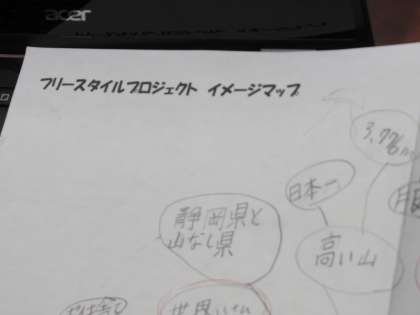 acer
フリースタイルプロジェクト イメージマップ
3,776m
日本一
静岡県と
山なし県
高い山